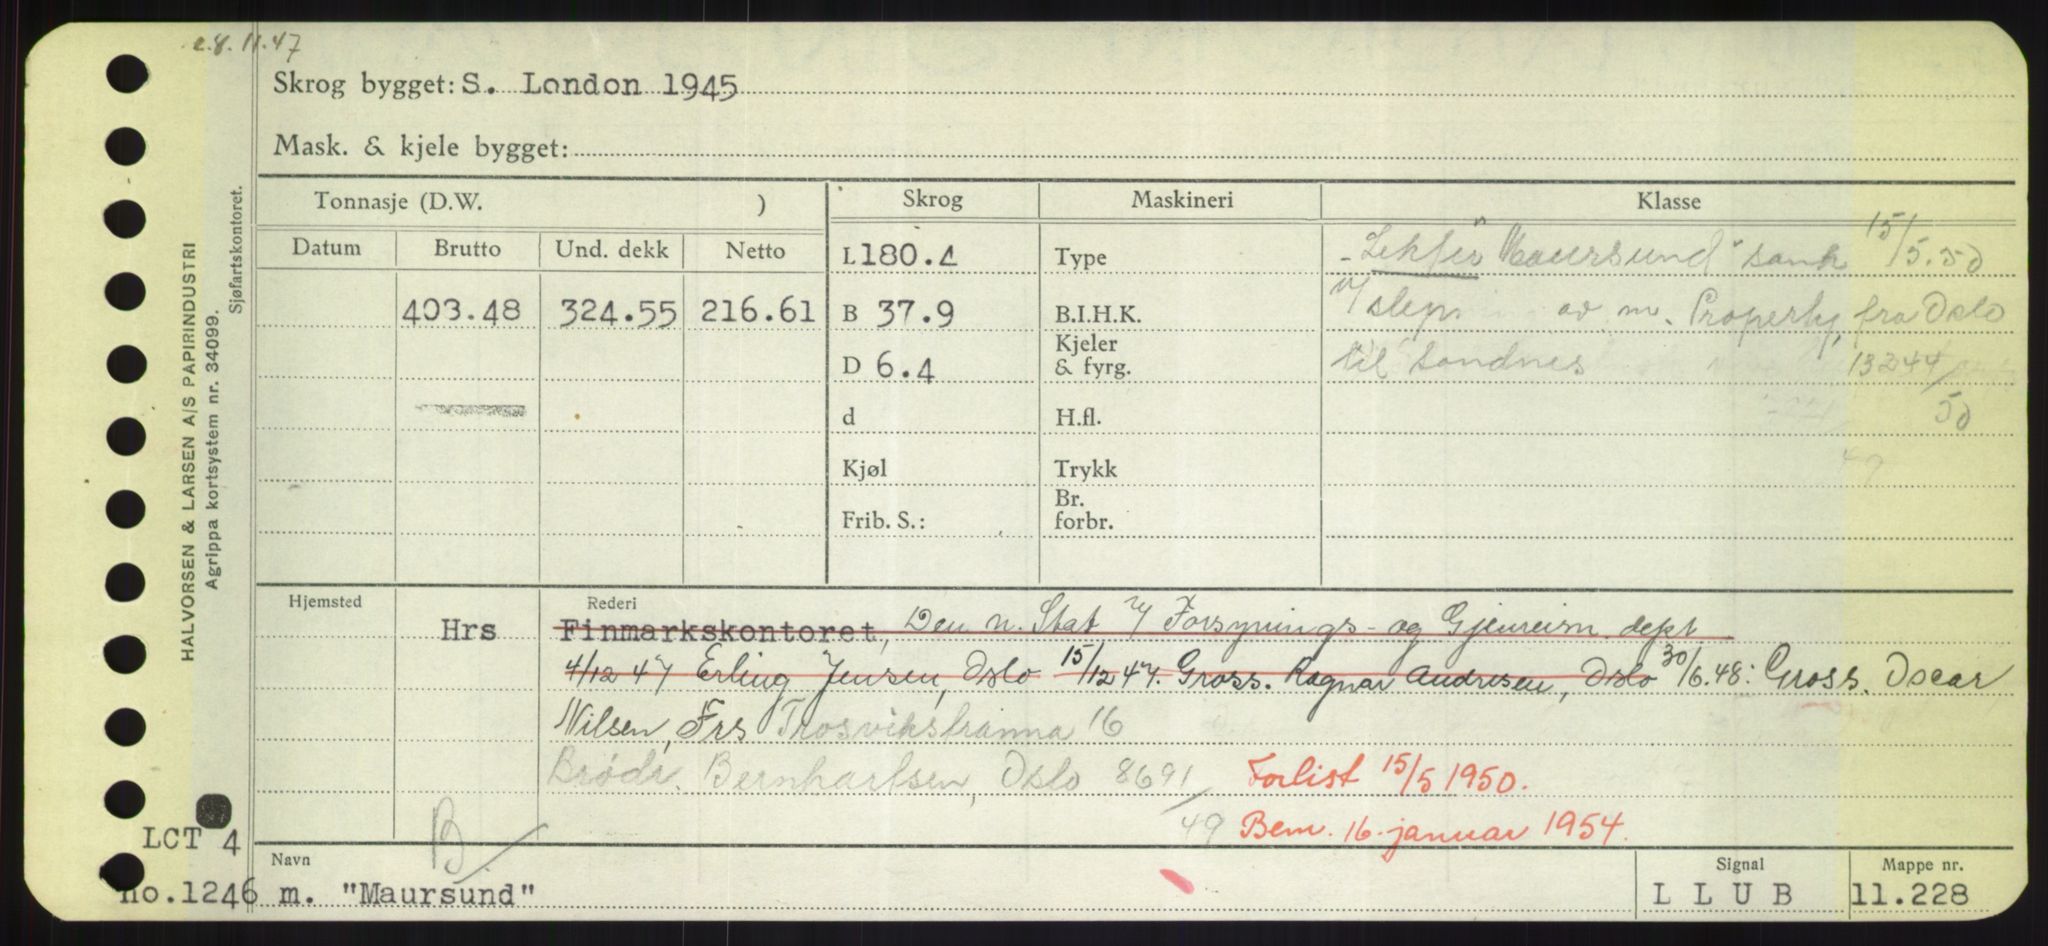 28.11.47
Skrog bygget: S. London 1945
Mask. & kjele bygget:
Tonnasje (D.W. ) Skrog Maskineri Klasse
Datum Brutto Und. dekk Netto
403.48 324.55 216.61
L 180.4
B 37.9
D 6.4
d
Kjøl
Frib. S.:
Type
B.I.H.K.
Kjeler
& fyrg.
H.fl.
Trykk
Br.
forbr.
- Lekter "Maursund" sank 15/5.50
u/ slep av m. Property, fra Oslo
til Sandnes 13244/50
49
Hjemsted Rederi
Hrs Finmarkskontoret, Den n. Stat v/ Forsynings- og Gjenreisn. dept
4/12 47 Erling Jensen, Oslo 15/12 47. Gross. Ragnar Andresen, Oslo 30/6.48: Gross. Oscar
Nilsen, Frs Trosvikstranna 16
Brødr. Bernhartsen, Oslo 8691/49 Forlist 15/5 1950.
B/ Bem. 16. januar 1954.
LCT 4
no.1246
Navn
m. "Maursund"
Signal
L L U B
Mappe nr.
11.228
HALVORSEN & LARSEN A/S PAPIRINDUSTRI
Agrippa kortsystem nr. 34099.
Sjøfartskontoret.